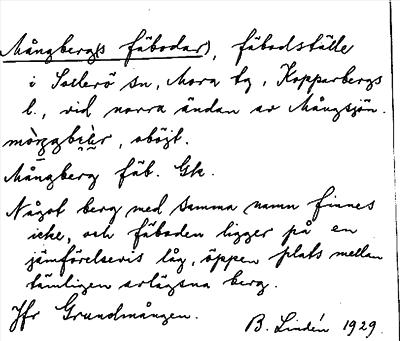 Mångberg(s fäbodar), fäbodställe
i Sollerö sn, Mora tg, Kopparbergs
l., vid norra ändan av Mångsjön.
oböjt.
Mångberg fäb. Gk.
Något berg med samma namn finnes
icke, och fäboden ligger på en
jämförelsevis låg, öppen plats mellan
tämligen avlägsna berg.
Jfr Grundmången.
B. Lindén 1929.